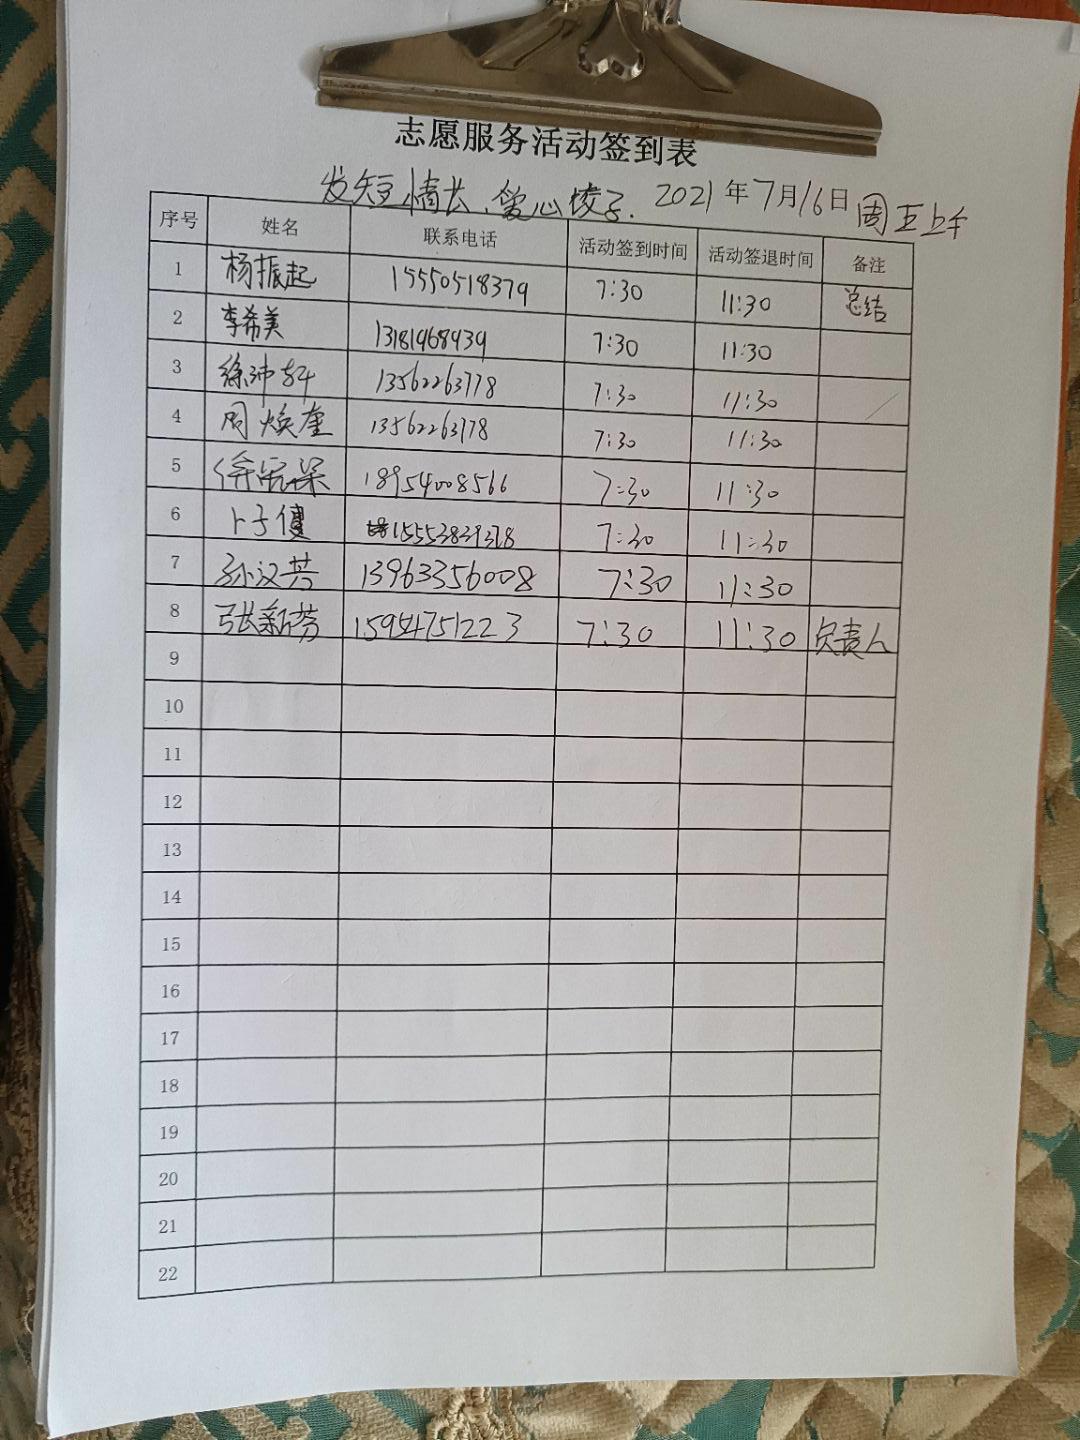 志愿服务活动签到表
发短情长、爱心棱子. 2021年7月16日 周五上午
序号 姓名 联系电话 活动签到时间 活动签退时间 备注
1 杨振起 15550518379 7:30 11:30 总结
2 李希美 13181968939 7:30 11:30
3 徐沛轩 13562263778 7:30 11:30
4 周焕奎 13562263778 7:30 11:30
5 18954008566 7:30 11:30
6 卜子健 15553839378 7:30 11:30
7 孙汉芸 13963356008 7:30 11:30
8 张新芬 15954751223 7:30 11:30 负责人
9
10
11
12
13
14
15
16
17
18
19
20
21
22